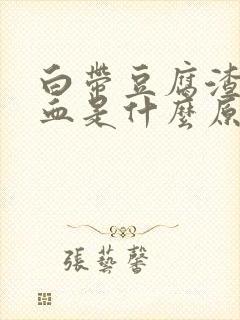 白帶豆腐渣
血是什麼原
張藝馨